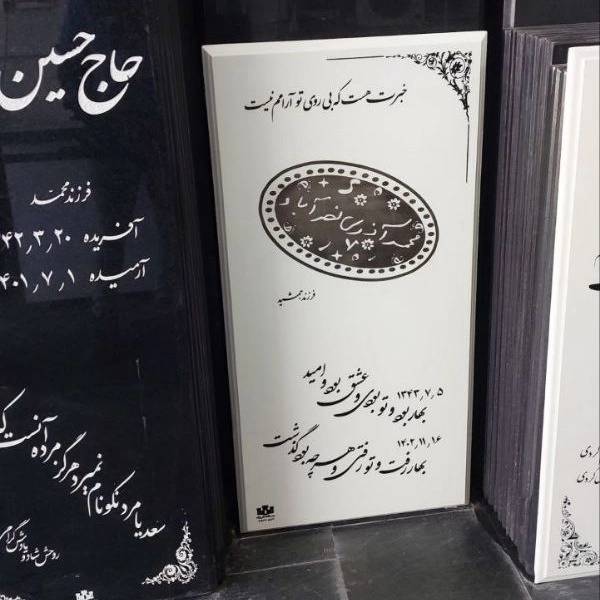 حاج حسین
فرزند محمد
آفریده ۴۲٫۳٫۲۰
آرمیده ۴۰۱٫۷٫۱
سعدیا مرد نکونام نمیرد هرگز
مرده آنست که
روحش شاد و یادش گرامی
خبرت هست که بی روی تو آرامم نیست
محمد آذری نصرآباد
فرزند جمشید
۱۳۴۳٫۷٫۵
بهار بود و تو بودی و عشق بود و امید
۱۴۰۲٫۱۱٫۱۶
بهار رفت و تو رفتی و هر چه بود گذشت